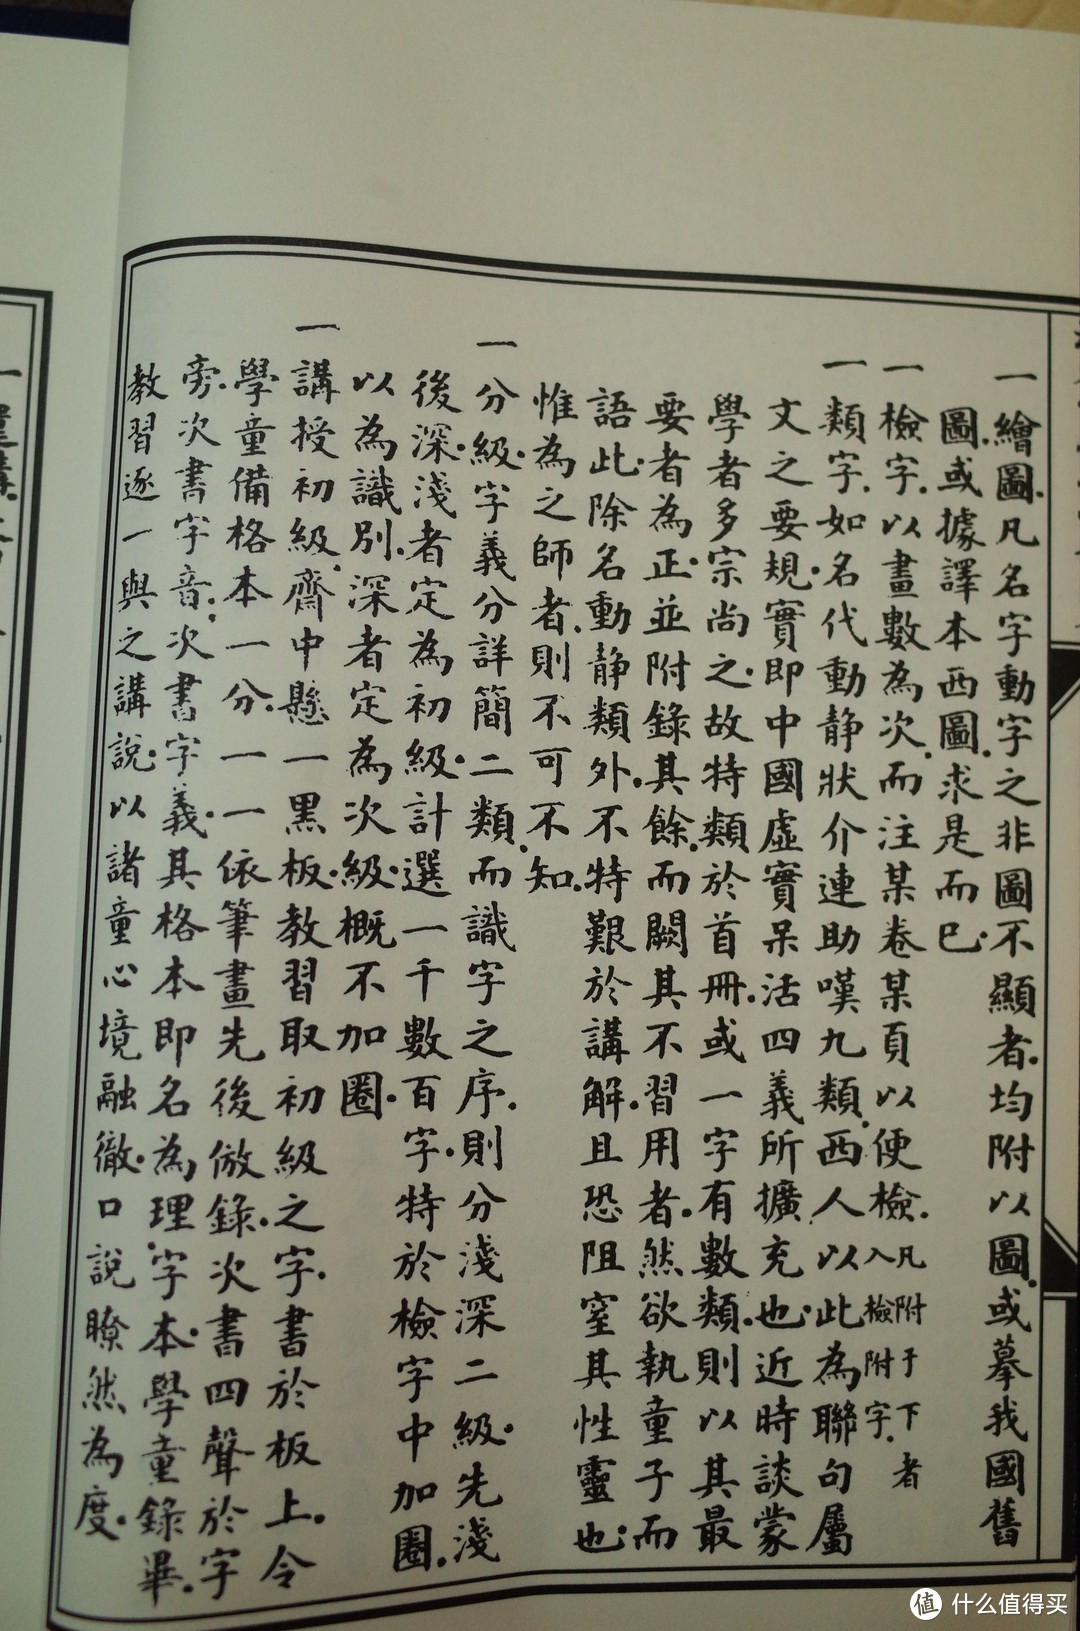 一繪圖凡名字動字之非圖不顯者均附以圖或摹我國舊
圖或據譯本西圖求是而已
一檢字以畫數為次而注某卷某頁以便檢入凡檢附附于字下者
一類字如名代動静狀介連助嘆九類西人以此為聯句屬
文之要規實即中國虛實呆活四義所擴充也近時談蒙
學者多宗尚之故特類於首冊或一字有數類則以其最
要者為正並附錄其餘而闕其不習用者然欲執童子而
語此除名動静類外不特艱於講解且恐阻窒其性靈也
惟為之師者則不可不知
一分級字義分詳簡二類而識字之序則分淺深二級先淺
後深淺者定為初級計選一千數百字特於檢字中加圈
以為識別深者定為次級概不加圈
一講授初級齋中懸一黑板教習取初級之字書於板上令
學童備格本一分一一依筆畫先後倣錄次書四聲於字
旁次書字音次書字義其格本即名為理字本學童錄畢
教習逐一與之講說以諸童心境融徹口說瞭然為度
值 什么值得买